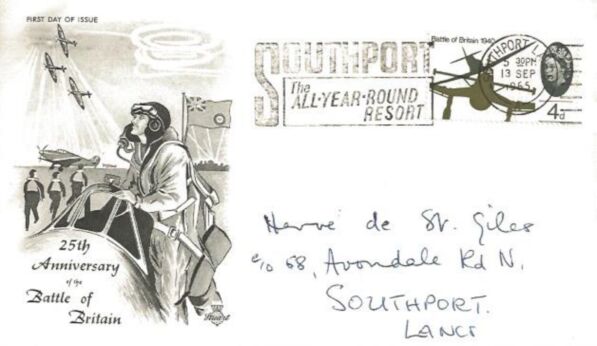 FIRST DAY OF ISSUE
25th
Anniversary
of the
Battle of
Britain
Stuart
SOUTHPORT
The
ALL·YEAR·ROUND
RESORT
Battle of Britain 1940
SOUTHPORT L
5 30PM
13 SEP
1965
4d
Hervé de St. Giles
c/o 68, Avondale Rd N.
SOUTHPORT.
LANCS